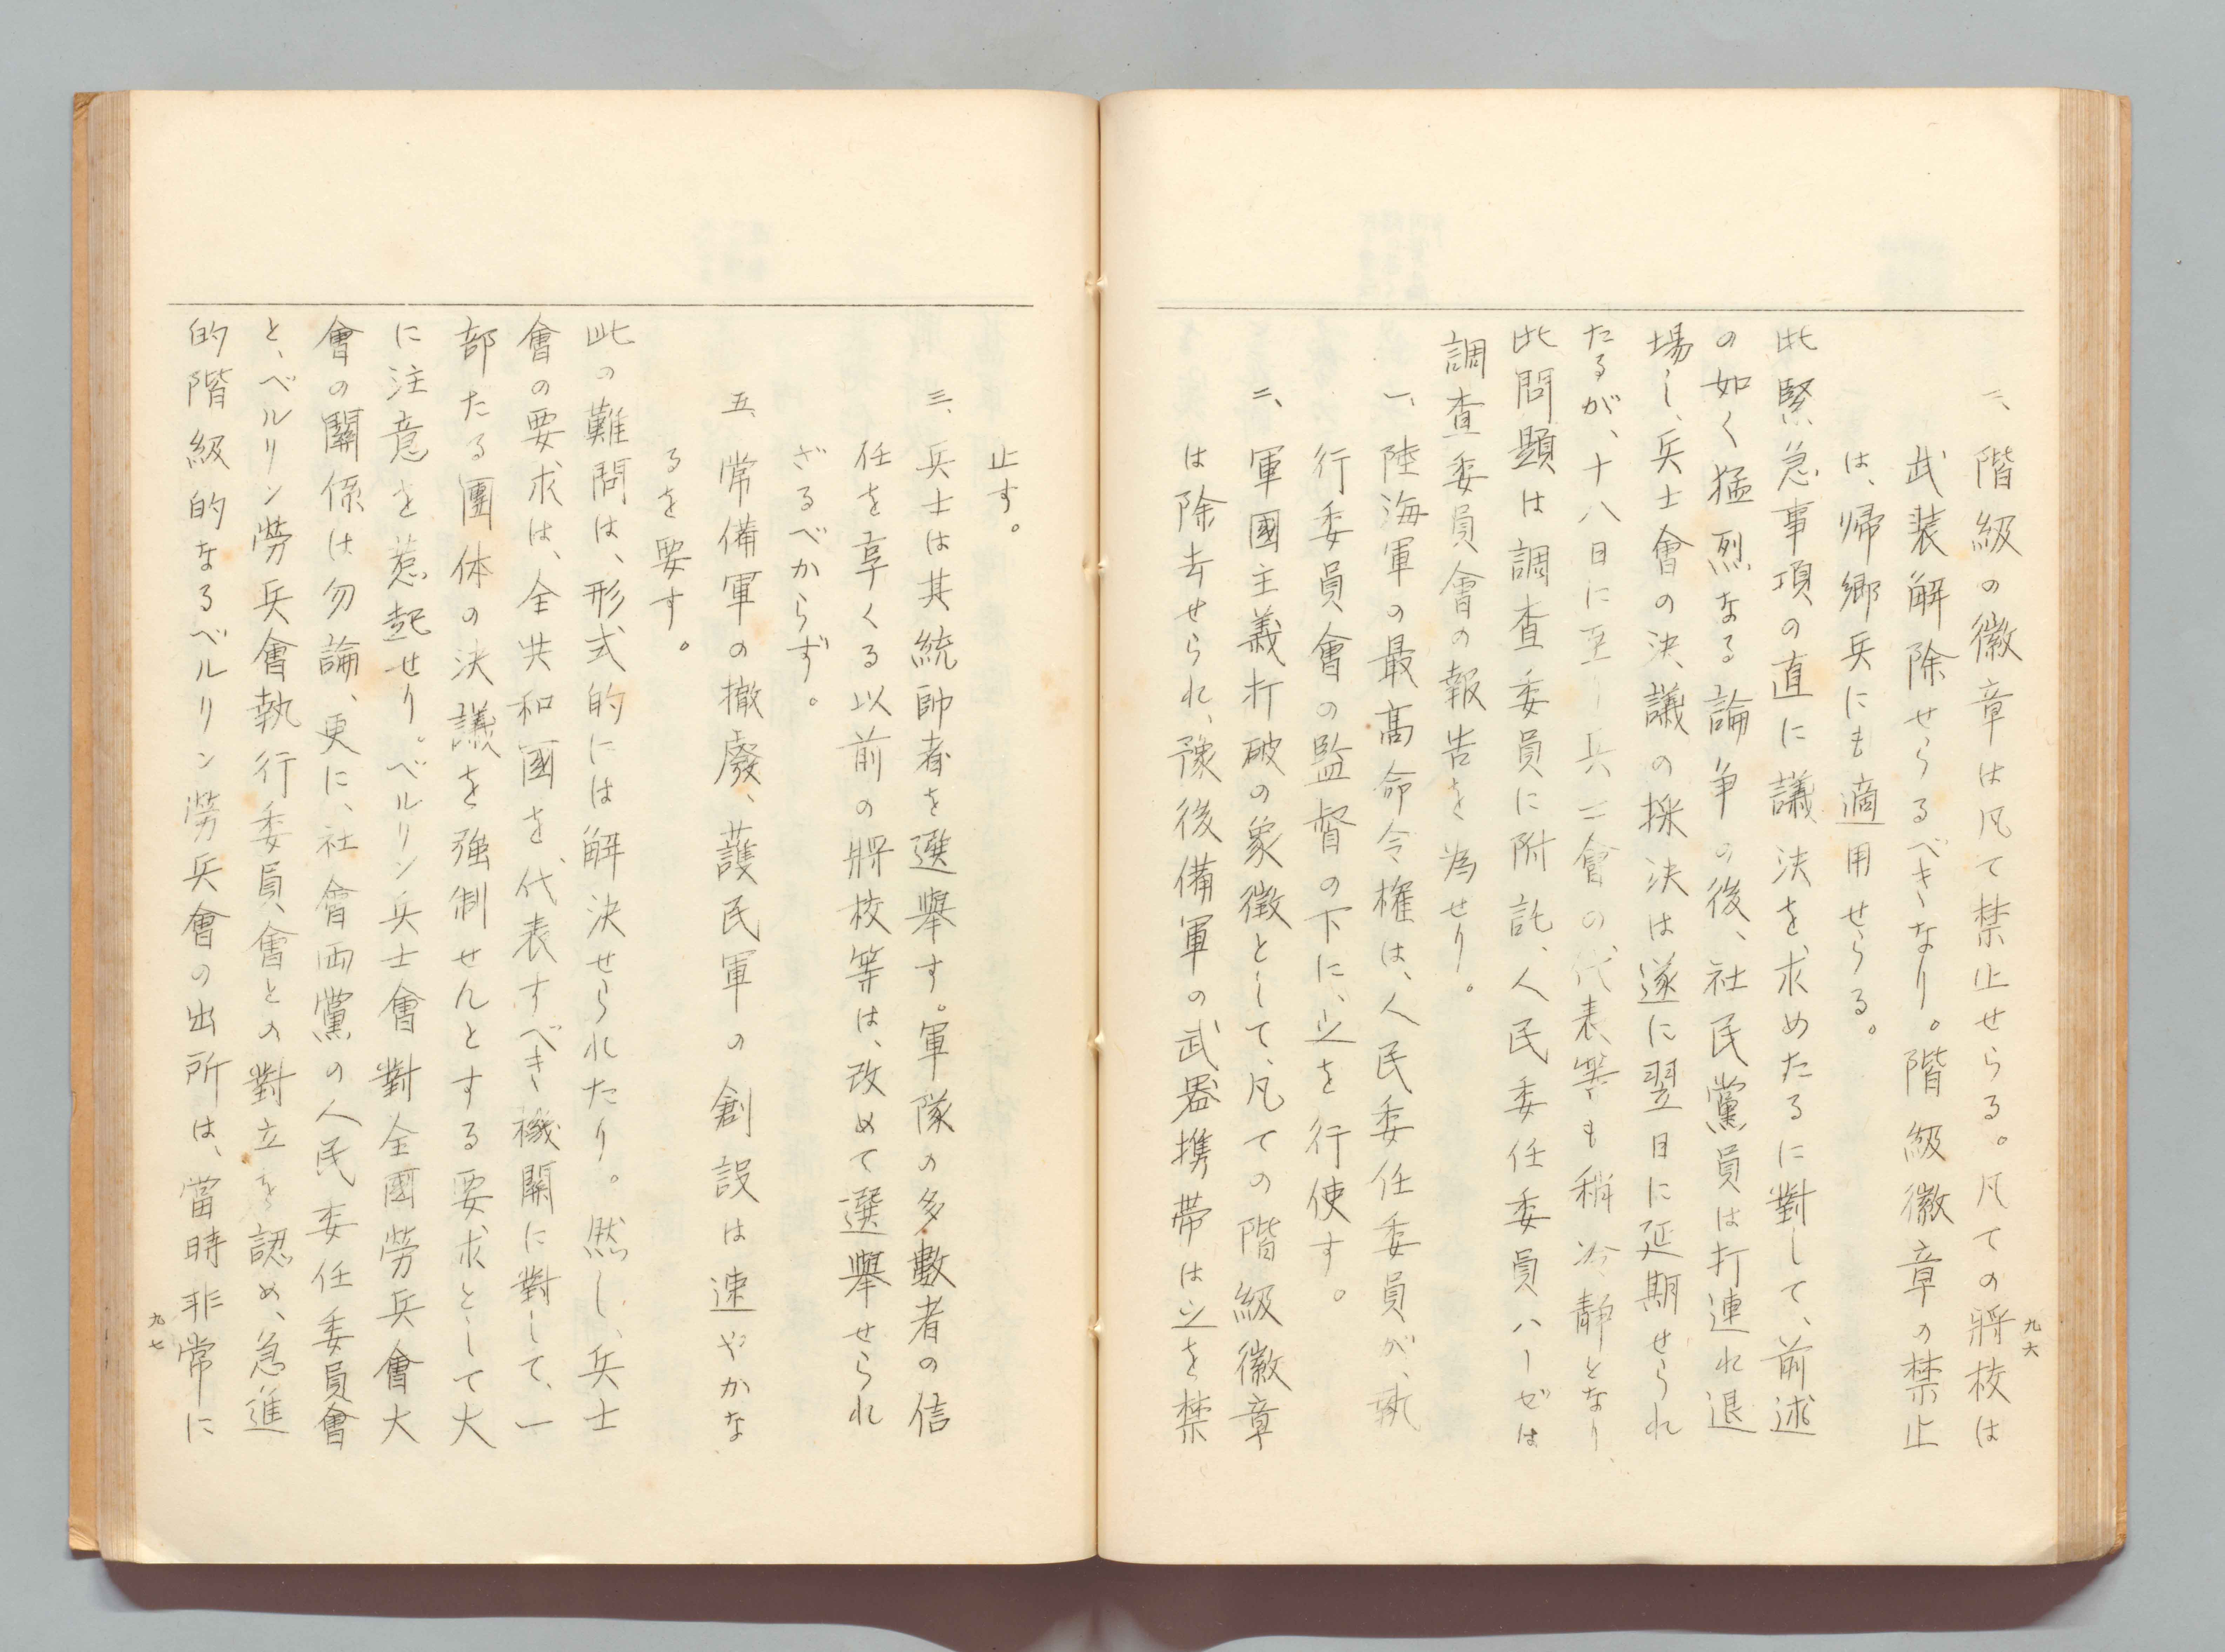 九六
二、階級の徽章は凡て禁止せらる。凡ての將校は
武装解除せらるべきなり。階級徽章の禁止
は、帰郷兵にも適用せらる。
此緊急事項の直に議決を求めたるに對して、前述
の如く猛烈なる論争の後、社民黨員は打連れ退
場し、兵士會の決議の採決は遂に翌日に延期せられ
たるが、十八日に至り兵士會の代表等も稍冷靜となり、
此問題は調査委員に附託、人民委任委員ハーゼは
調査委員會の報告を為せり。
一、陸海軍の最高命令権は、人民委任委員が、執
行委員會の監督の下に、之を行使す。
二、軍國主義打破の象徴として、凡ての階級徽章
は除去せられ、豫後備軍の武器携帯は之を禁
止す。
三、兵士は其統帥者を選擧す。軍隊の多數者の信
任を享くる以前の將校等は、改めて選擧せられ
ざるべからず。
五、常備軍の撤廢、護民軍の創設は速やかな
るを要す。
此の難問は、形式的には解決せられたり。然し、兵士
會の要求は、全共和國を代表すべき機關に對して、一
部たる團体の決議を強制せんとする要求として大
に注意を惹起せり。ベルリン兵士會對全國勞兵會大
會の關係は勿論、更に、社會両黨の人民委任委員會
と、ベルリン勞兵會執行委員會との對立を認め、急進
的階級的なるベルリン勞兵會の出所は、當時非常に
九七